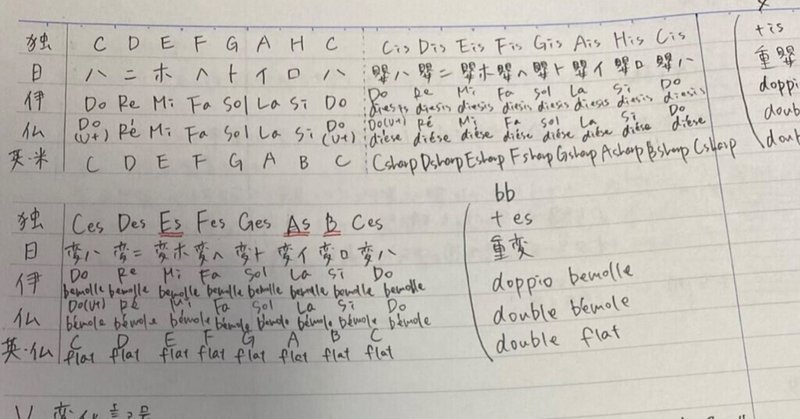 独 C D E F G A H C Cis Dis Eis Fis Gis Ais His Cis +is
日 ハ ニ ホ ヘ ト イ ロ ハ 嬰ハ 嬰ニ 嬰ホ 嬰ヘ 嬰ト 嬰イ 嬰ロ 嬰ハ 重嬰
伊 Do Re Mi Fa Sol La Si Do Do diesis Re diesis Mi diesis Fa diesis Sol diesis La diesis Si diesis Do diesis doppi
仏 Do (ut) Ré Mi Fa Sol La Si Do (ut) Do(ut) dièse Ré dièse Mi dièse Fa dièse Sol dièse La dièse Si dièse Do dièse doub
英・米 C D E F G A B C Csharp Dsharp Esharp Fsharp Gsharp Asharp Bsharp Csharp dou
bb
独 Ces Des Es Fes Ges As B Ces +es
日 変ハ 変ニ 変ホ 変ヘ 変ト 変イ 変ロ 変ハ 重変
伊 Do bemolle Re bemolle Mi bemolle Fa bemolle Sol bemolle La bemolle Si bemolle Do bemolle doppio bemolle
仏 Do(ut) bémole Ré bémole Mi bémole Fa bémole Sol bémole La bémole Si bémole Do bémole double bémole
英・仏 C flat D flat E flat F flat G flat A flat B flat C flat double flat
V 変化記号